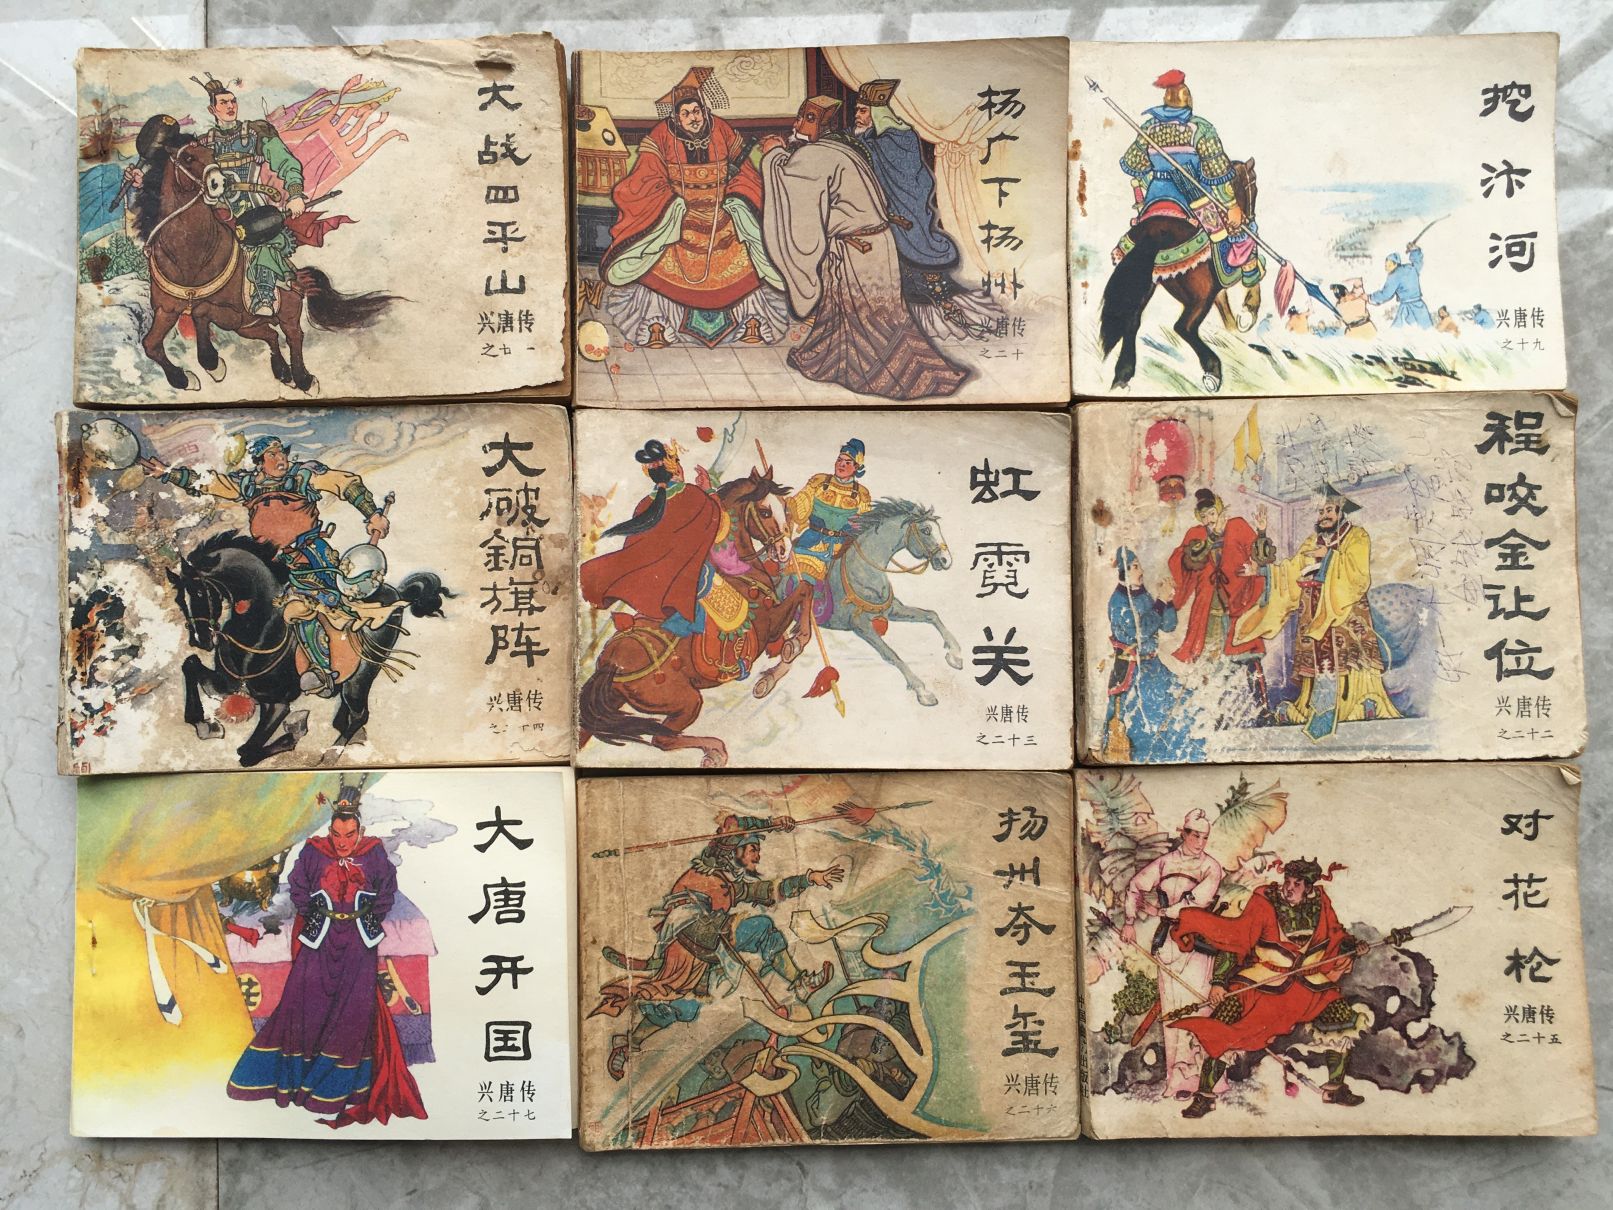 大战四平山
兴唐传
杨广下扬州
兴唐传
之二十
挖汴河
兴唐传
之十九
大破銅旗阵
兴唐传
虹霓关
兴唐传
之二十三
程咬金让位
兴唐传
之二十二
大唐开国
兴唐传
之二十七
扬州夺玉玺
兴唐传
之二十六
对花枪
兴唐传
之二十五